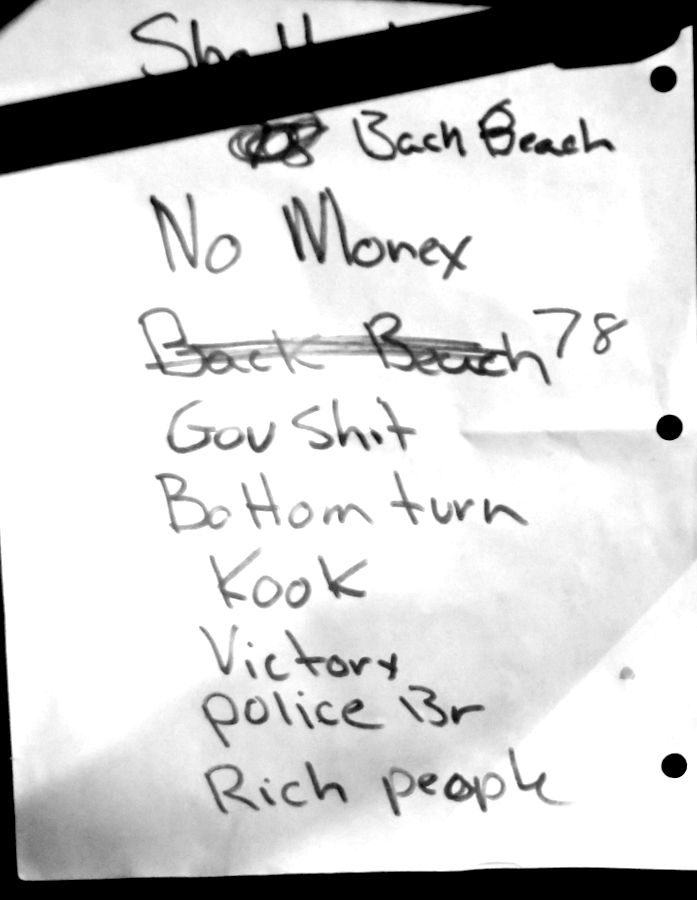 Bach Beach
No Money
Back Beach 78
Gov Shit
Bottom turn
Kook
Victory
police Br
Rich people